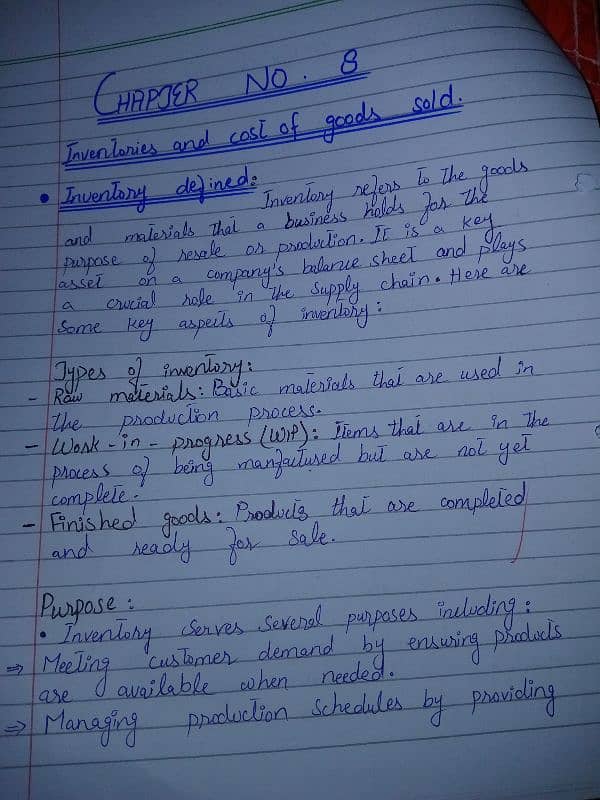 CHAPTER NO. 8
Inventories and cost of goods sold.
• Inventory defined: Inventory refers to the goods
and materials that a business holds for the
purpose of resale or production. It is a key
asset on a company's balance sheet and plays
a crucial role in the supply chain. Here are
Some key aspects of inventory:
Types of inventory:
- Raw materials: Basic materials that are used in
the production process.
- Work-in-progress (WIP): Items that are in the
process of being manfactused but are not yet
complete.
- Finished goods: Products that are completed
and ready for sale.
Purpose:
• Inventory serves several purposes including:
⇒ Meeting customer demand by ensuring products
are available when needed.
⇒ Managing production schedules by providing